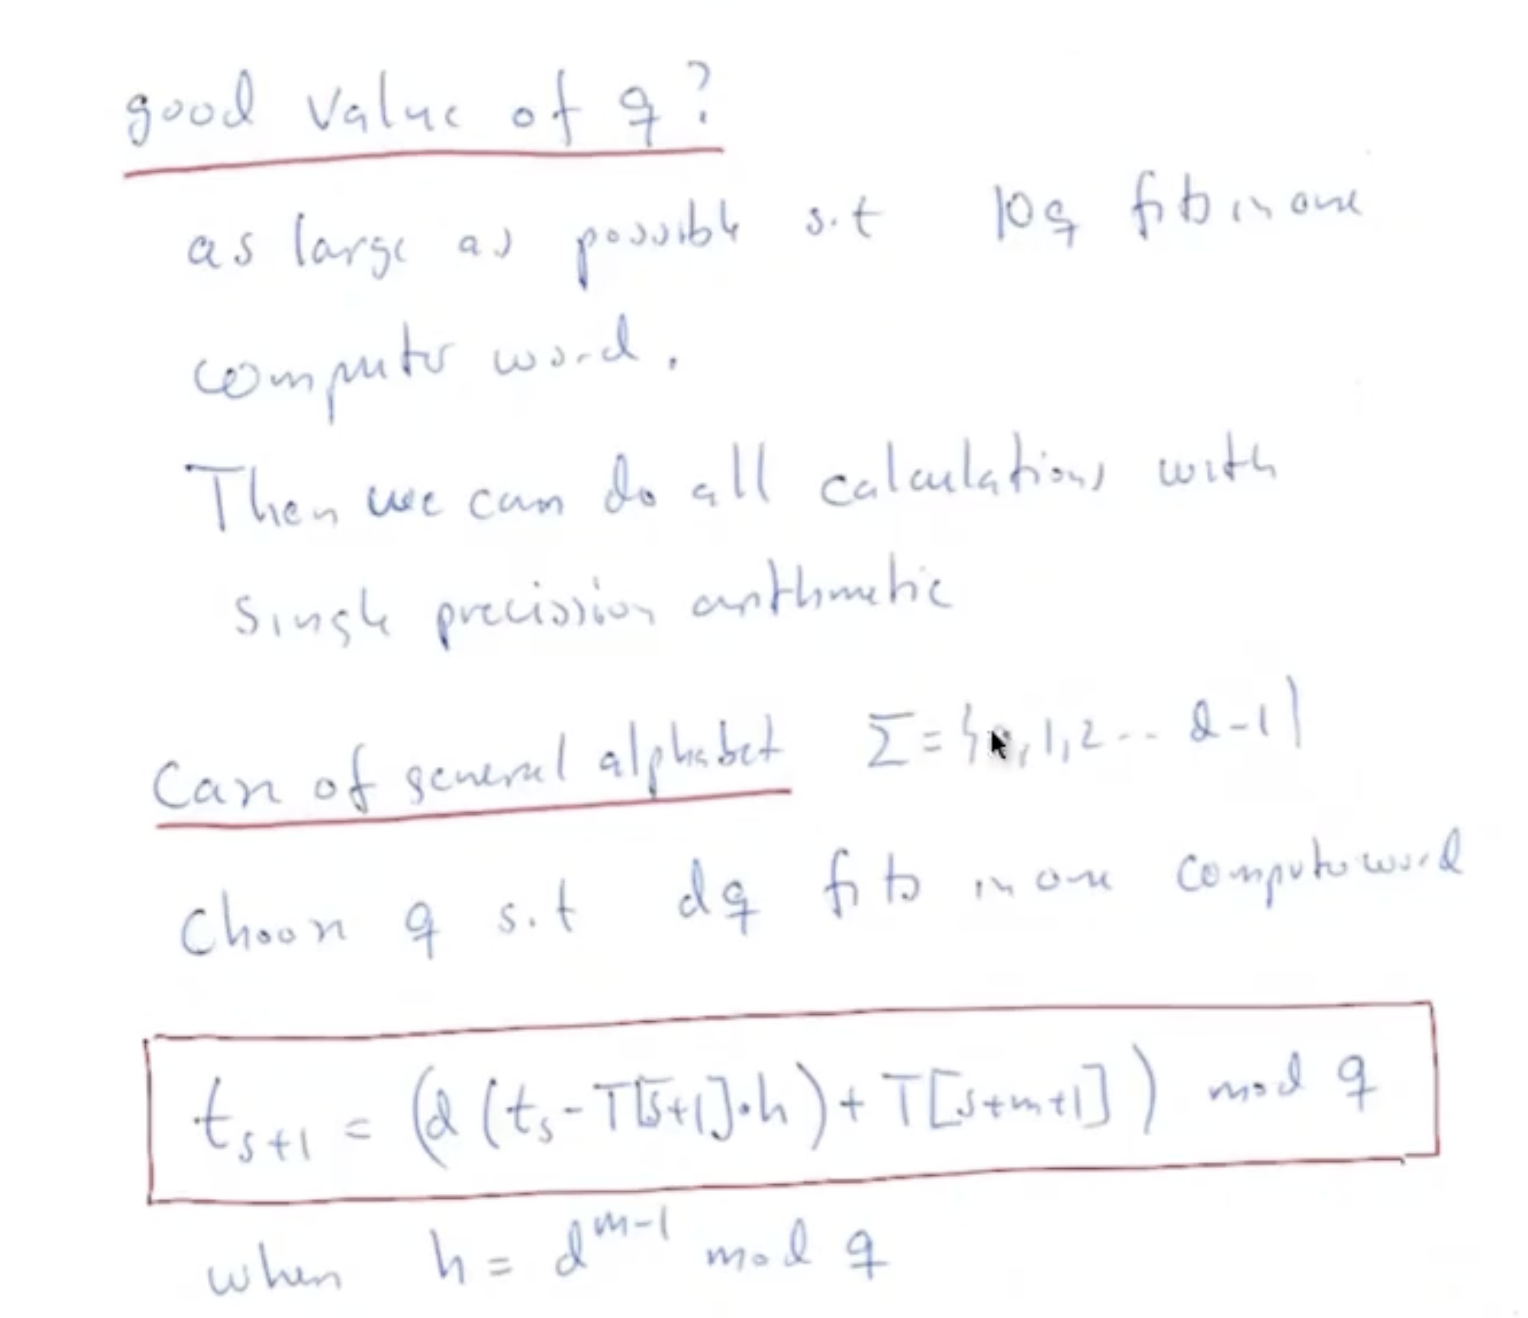 good value of q?
as large as possible s.t 10q fits in one
computer word.
Then we can do all calculations with
single precission arithmetic
Case of general alphabet Σ = {0,1,2... d-1}
Choose q s.t dq fits in one computer word
t_{s+1} = (d (t_s - T[s+1]·h) + T[s+m+1]) mod q
when h = d^{m-1} mod q